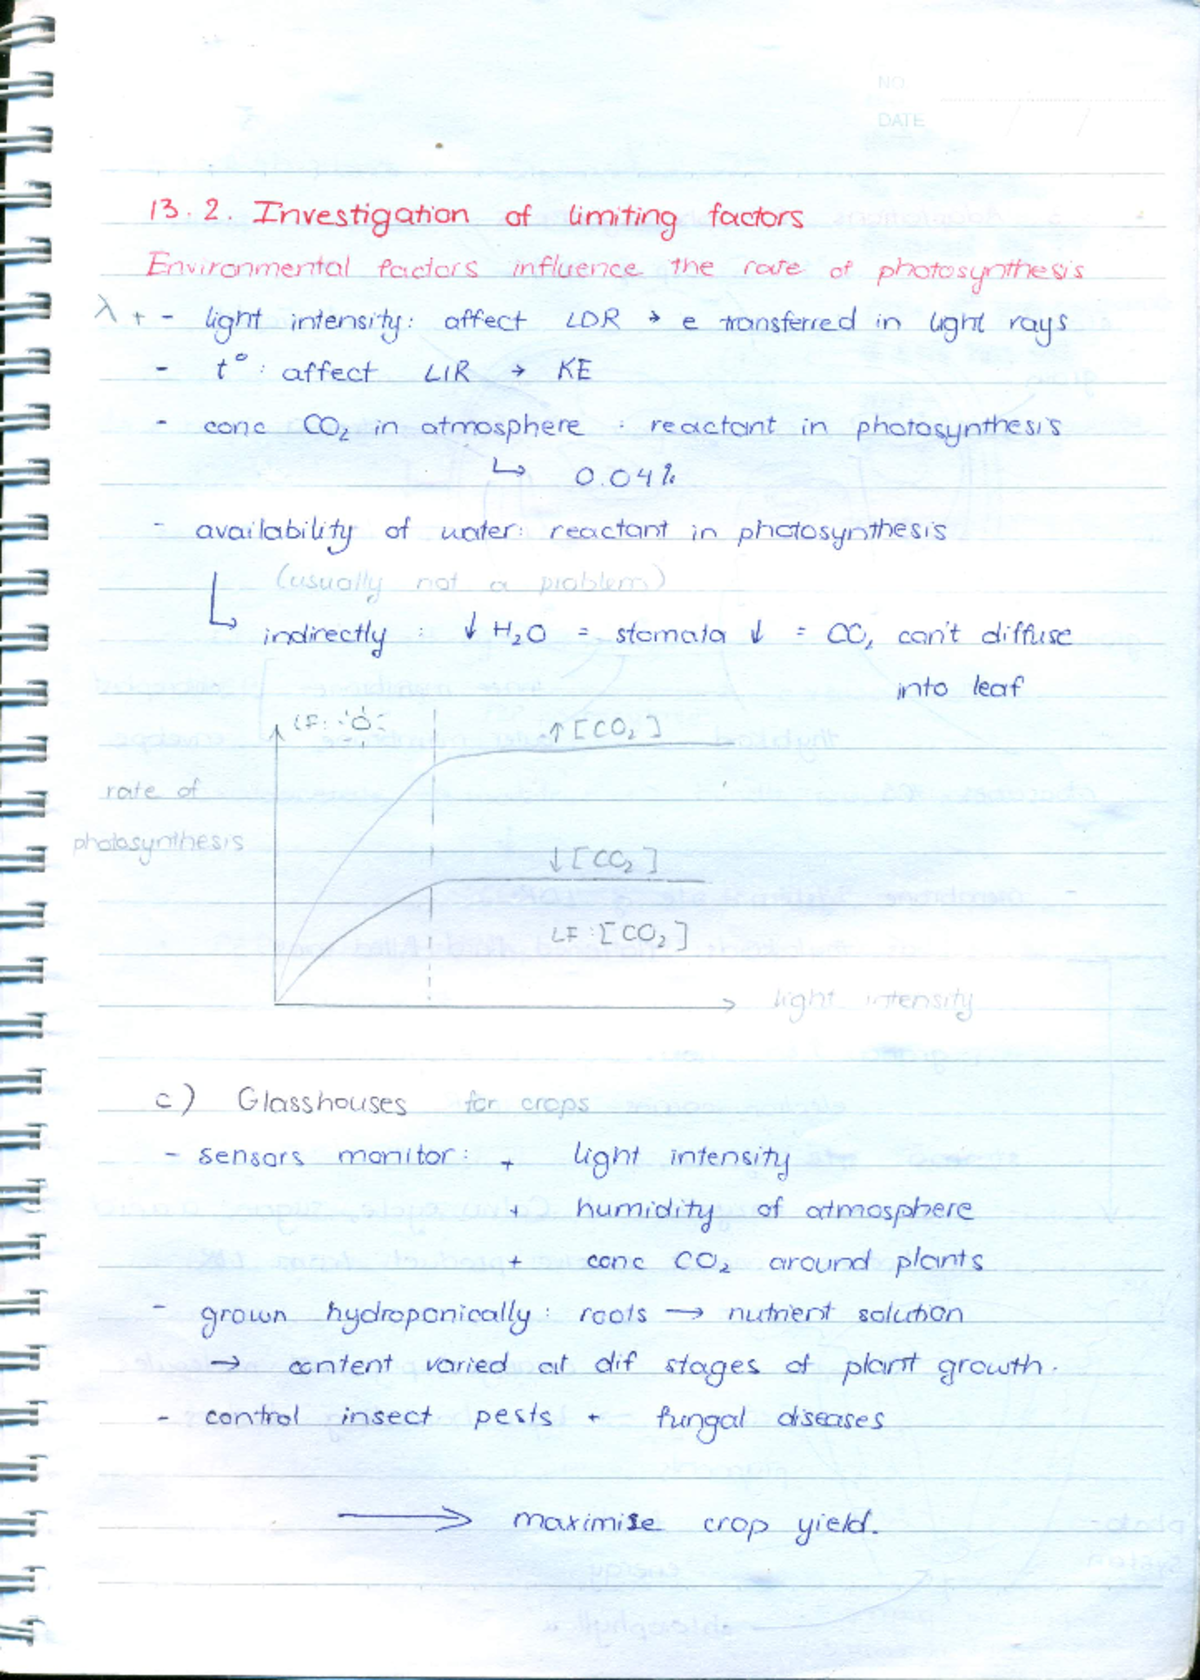 NO
DATE
13.2. Investigation of limiting factors
Environmental factors influence the rate of photosynthesis
λ + - light intensity: affect LDR → e transferred in light rays
- t° : affect LIR → KE
- conc CO₂ in atmosphere : reactant in photosynthesis
↳ 0.04%
- availability of water: reactant in photosynthesis
(usually not a problem)
↳ indirectly : ↓ H₂O = stomata ↓ = CO₂ can't diffuse
into leaf
LF:
↑[CO₂]
rate of
photosynthesis
↓[CO₂]
LF:[CO₂]
light intensity
c) Glasshouses for crops
- sensors monitor: + light intensity
+ humidity of atmosphere
+ conc CO₂ around plants
- grown hydroponically: roots → nutrient solution
→ content varied at dif stages of plant growth.
- control insect pests + fungal diseases
→ maximise crop yield.